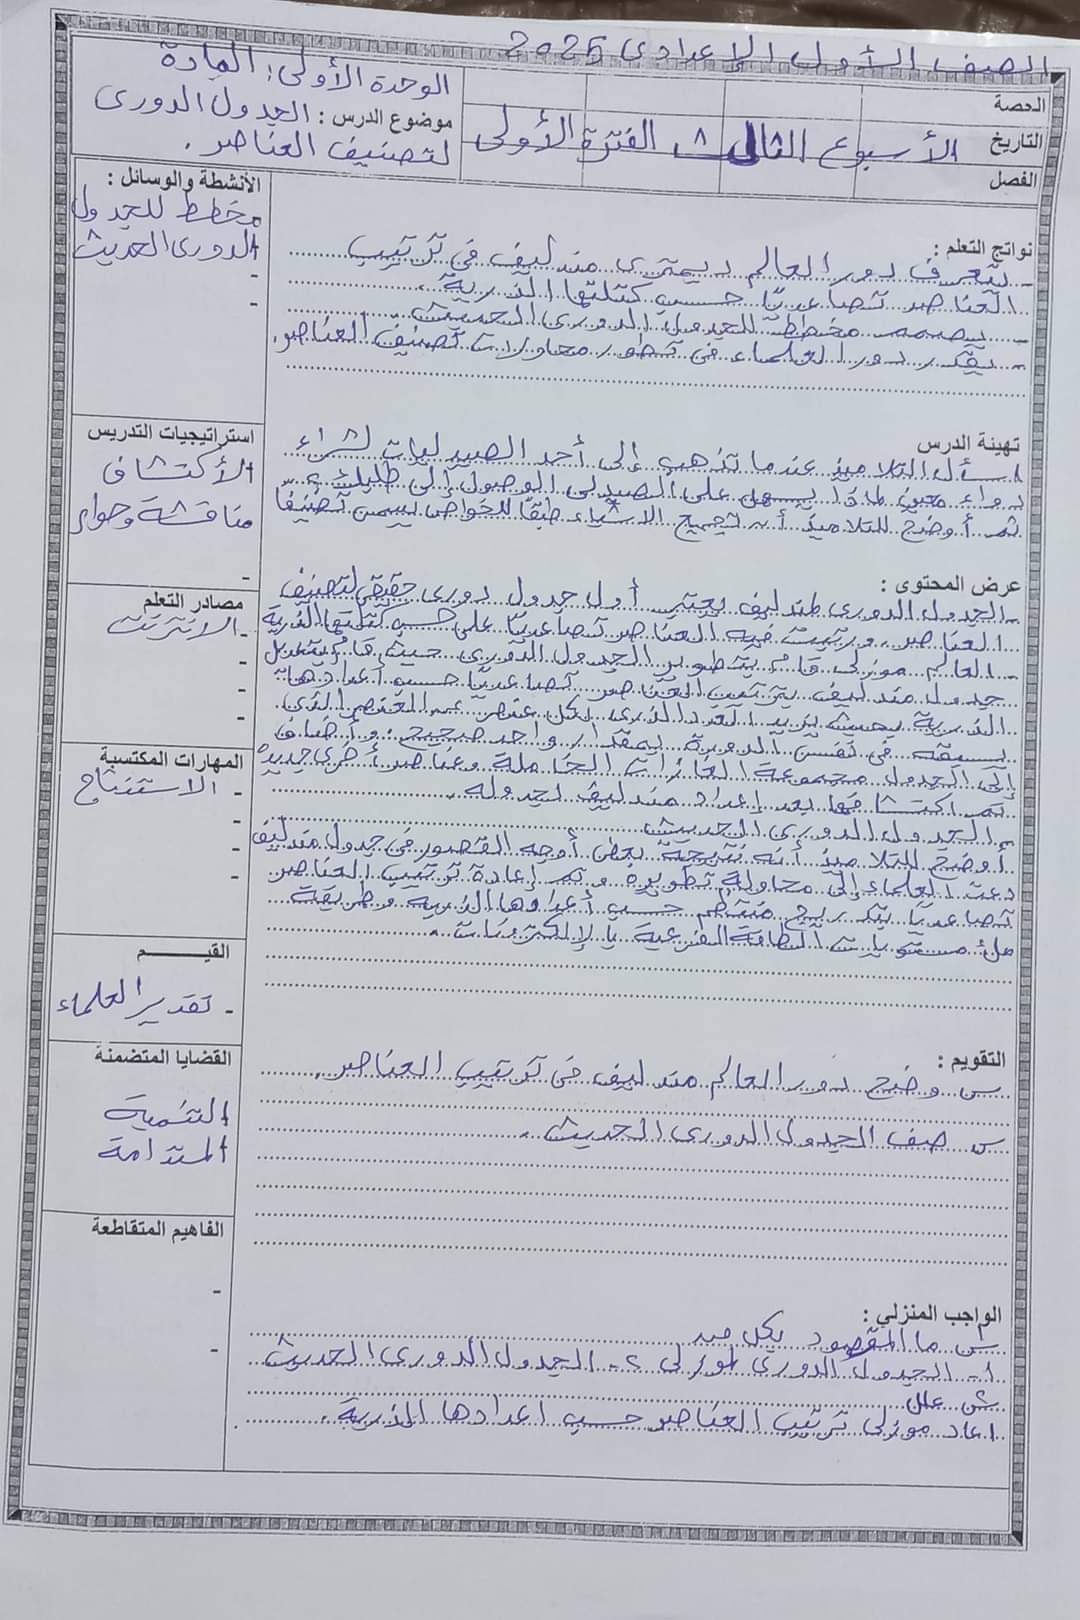 الصف الأول الإعدادى 2025
الوحدة الأولى: المادة
موضوع الدرس : الجدول الدورى
لتصنيف العناصر .
الحصة
التاريخ
الأسبوع الثالث الفترة الأولى
الفصل
نواتج التعلم :
- يتعرف دور العالم ديمترى مندليف فى ترتيب
العناصر تصاعديًا حسب كتلتها الذرية .
- يصمم مخطط للجدول الدورى الحديث .
- يقدر دور العلماء فى تطور محاولات تصنيف العناصر .
تهيئة الدرس
أسأل التلاميذ عندما تذهب إلى أحد الصيدليات لشراء
دواء معين لماذا يسهل على الصيدلى الوصول إلى طلبك ؟
ثم أوضح للتلاميذ أن تجميع الأشياء طبقًا للخواص يسمى تصنيفًا
عرض المحتوى :
- الجدول الدورى لمندليف يعتبر أول جدول دورى حقيقى لتصنيف
العناصر ورتبت فيه العناصر تصاعديًا على حسب كتلتها الذرية
- العالم موزلى قام بتطوير الجدول الدورى حيث قام بتعديل
جدول مندليف بترتيب العناصر تصاعديًا حسب أعدادها
الذرية بحيث يزيد العدد الذرى لكل عنصر عن العنصر الذى
يسبقه فى نفس الدورة بمقدار واحد صحيح . وأضاف
إلى الجدول مجموعة الغازات الخاملة وعناصر أخرى جديدة
تم اكتشافها بعد إعداد مندليف لجدوله .
- الجدول الدورى الحديث
أوضح للتلاميذ أنه نتيجة بعض أوجه القصور فى جدول مندليف
دعت العلماء إلى محاولة تطويره وتم إعادة ترتيب العناصر
تصاعديًا بتدريج منتظم حسب أعدادها الذرية وطريقة
ملئ مستويات الطاقة الفرعية بالإلكترونات .
التقويم :
س وضح دور العالم مندليف فى ترتيب العناصر .
س صف الجدول الدورى الحديث .
الواجب المنزلي :
س ما المقصود بكل من
1- الجدول الدورى لموزلى 2- الجدول الدورى الحديث
س علل
اعاد موزلى ترتيب العناصر حسب اعدادها الذرية .
الأنشطة والوسائل :
مخطط للجدول
الدورى الحديث
-
-
استراتيجيات التدريس
الأكتشاف
مناقشة وحوار
-
مصادر التعلم
- الانترنت
-
-
-
المهارات المكتسبة
- الاستنتاج
-
-
-
القيـــــم
- تقدير العلماء
القضايا المتضمنة
التنمية
المستدامة
الفاهيم المتقاطعة
-
-